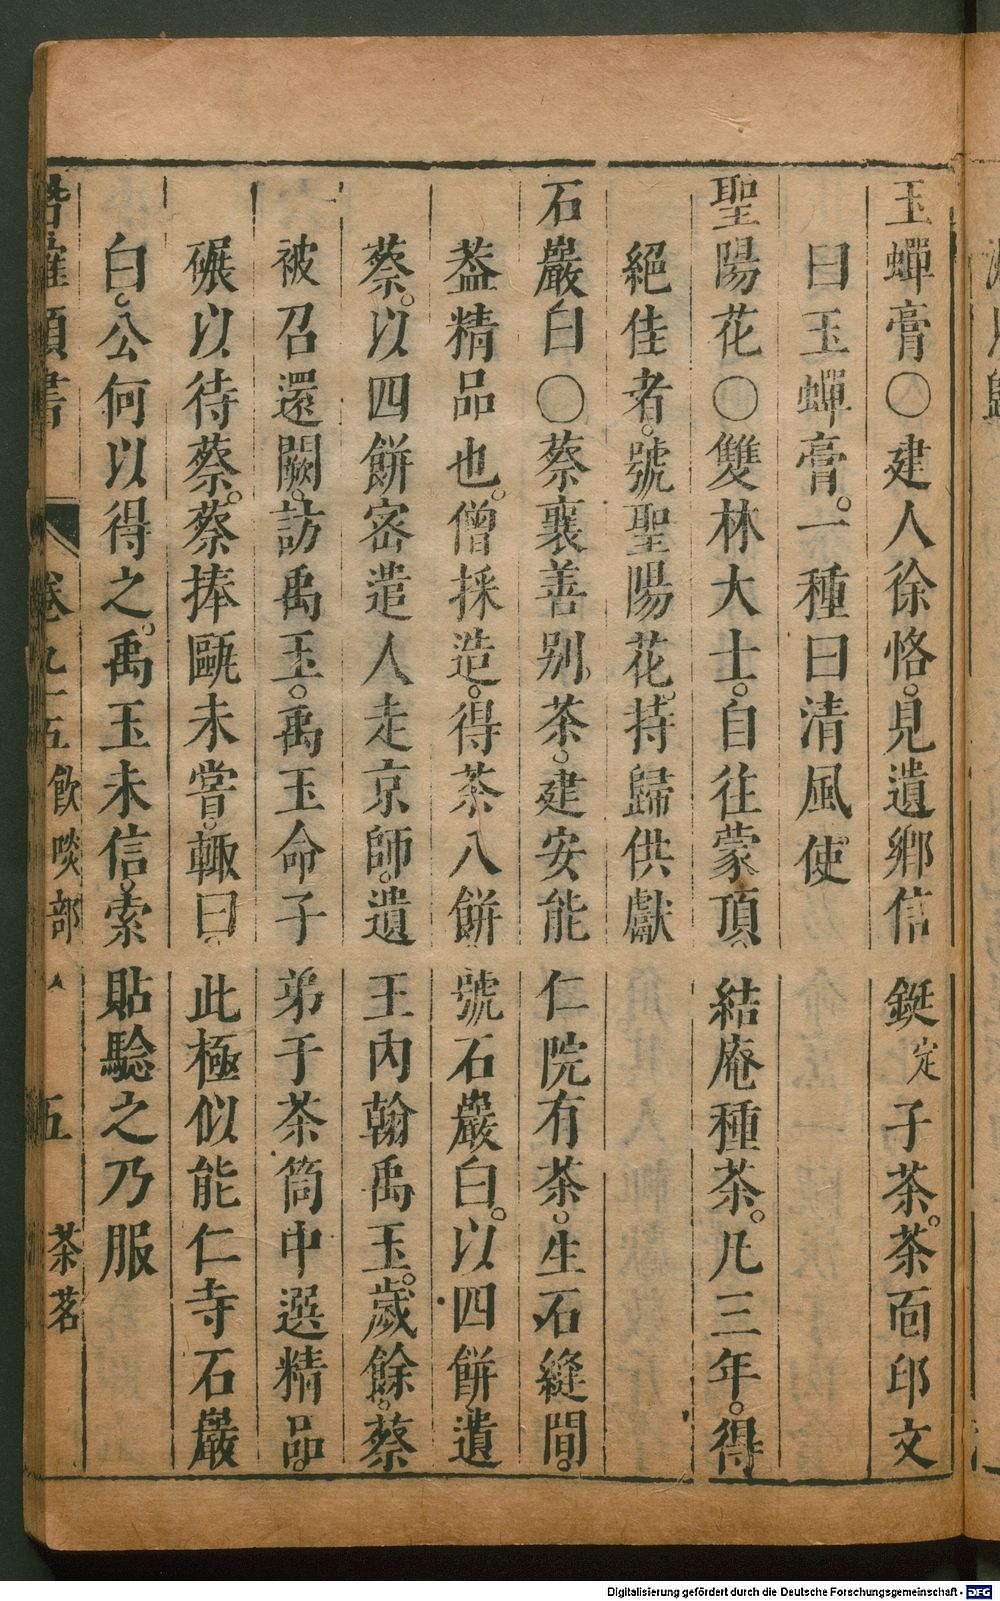 玉蟬膏○建人徐恪。見遺鄉信鋌定子茶。茶面印文
曰玉蟬膏。一種曰清風使
聖陽花○雙林大士。自往蒙頂。結庵種茶。凡三年。得
絕佳者。號聖陽花。持歸供獻
石巖白○蔡襄善別茶。建安能仁院有茶。生石縫間。
葢精品也。僧採造。得茶八餅。號石巖白。以四餅遺
蔡。以四餅密遣人走京師。遺王內翰禹玉。歲餘。蔡
被召還闕。訪禹玉。禹玉命子弟于茶筒中選精品。
碾以待蔡。蔡捧甌未嘗。輒曰。此極似能仁寺石巖
白。公何以得之。禹玉未信。索貼驗之乃服
類書 卷九十五 飲啖部 五 茶茗
Digitalisierung gefördert durch die Deutsche Forschungsgemeinschaft - DFG